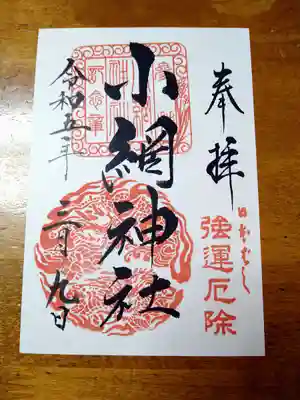 奉拝
日本むし
強運厄除
小網神社
令和五年
三月九日